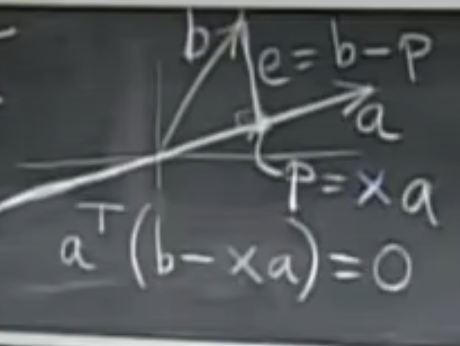 b
e = b - p
a
p = x a
a^T (b - xa) = 0